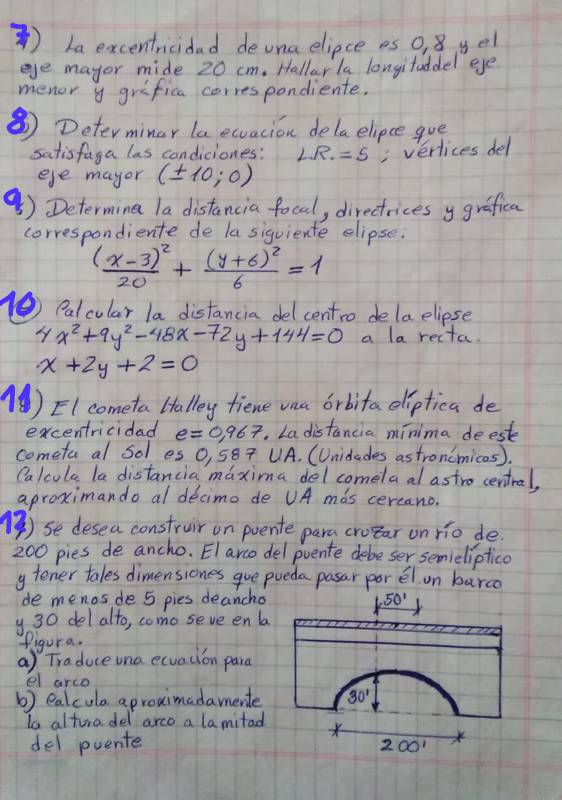 7) La excentricidad de una elipce es 0,8 y el
eje mayor mide 20 cm. Hallar la longitud del eje
menor y gráfica correspondiente.
8) Determinar la ecuación de la elipce que
satisfaga las condiciones: L.R. = 5 ; vértices del
eje mayor (±10;0)
9) Determina la distancia focal, directrices y gráfica
correspondiente de la siguiente elipse:
(x-3)²/20 + (y+6)²/6 = 1
10) Calcular la distancia del centro de la elipse
4x²+9y²-48x-72y+144=0 a la recta.
x+2y+2=0
11) El cometa Halley tiene una órbita elíptica de
excentricidad e=0,967. La distancia mínima de este
cometa al Sol es 0,587 UA. (Unidades astronómicas).
Calcula la distancia máxima del cometa al astro central,
aproximando al décimo de UA más cercano.
12) Se desea construir un puente para cruzar un río de
200 pies de ancho. El arco del puente debe ser semielíptico
y tener tales dimensiones que pueda pasar por él un barco
de menos de 5 pies de ancho
y 30 del alto, como se ve en la
figura.
a) Traduce una ecuación para
el arco
b) Calcula aproximadamente
la altura del arco a la mitad
del puente
50'
30'
200'